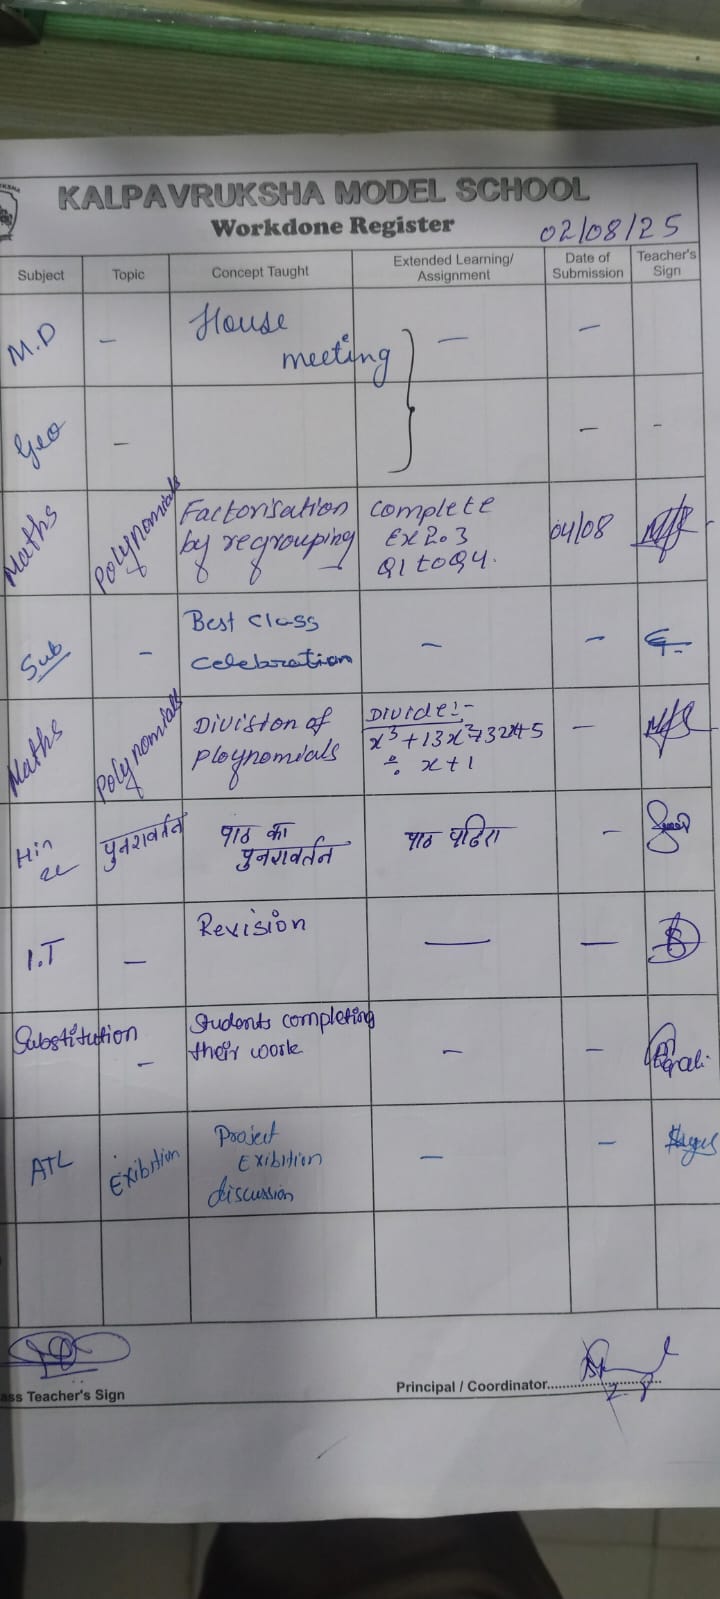 KALPAVRUKSHA MODEL SCHOOL
Workdone Register
02/08/25
Subject Topic Concept Taught Extended Learning/ Assignment Date of Submission Teacher's Sign
M.D - House meeting - -
Geo - -
Maths Polynomials Factorisation by regrouping Complete Ex 2.3 Q1 to Q4. 04/08
Sub - Best class celebration - -
Maths Polynomials Division of ploynomials Divide:- x³+13x²+32x+5 ÷ x+1 -
Hin पुनरावर्तन पाठ का पुनरावर्तन पाठ पढिए -
I.T - Revision - -
Substitution - Students completing their work - -
ATL Exibition Project Exibition discussion - -
ass Teacher's Sign
Principal / Coordinator